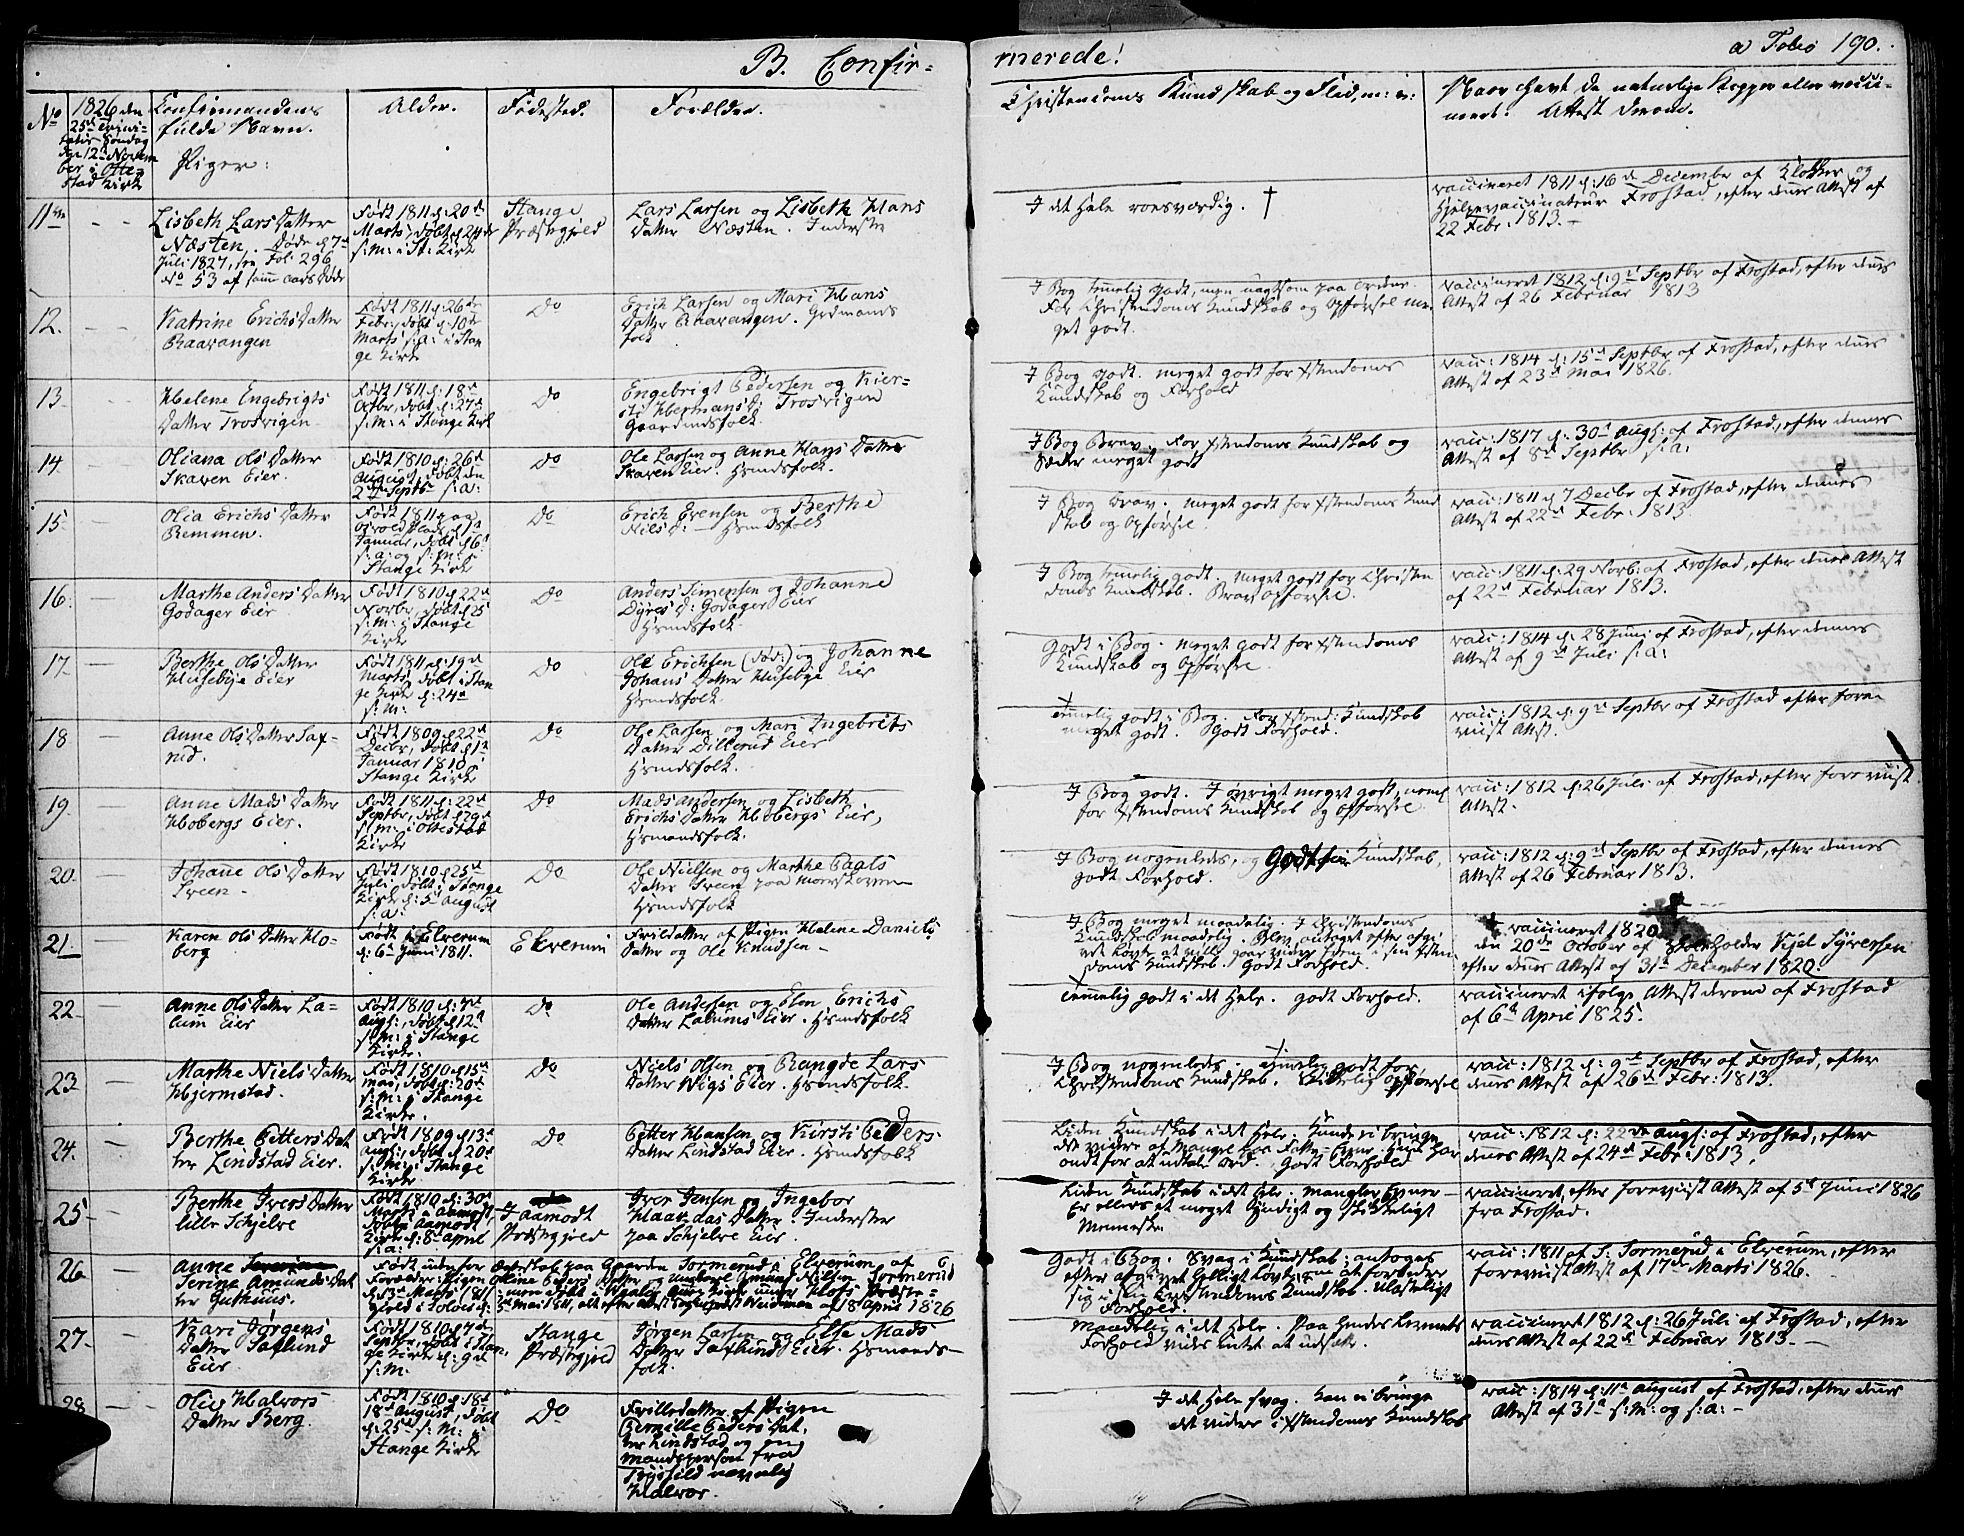 B. Confir-
merede!
a Folio 190.
No
1826 den
25de Trini-
tatis Søndag
den 12te Novem
ber i Otte-
stad Kirke
Confirmandens
fulde Navn.
Piger:
Alder.
Fødested.
Forældre.
Christendoms Kundskab og Flid, m: v:
Naar havt de naturlige Kopper eller vacci-
neert. Attest derom.
11
Lisbeth Lars Datter
Næsten. Døde d. 7de
Juli 1827, see Fol: 296
No 53 af samme aars Døde
Født 1811 d: 20de
Marts, døbt d 24de
s: M: i St: Kirke
Stange
Præstegjeld
Lars Larsen og Lisbeth Hans
Datter Næsten. Inderster
I det Hele roesværdig. †
vaccineret 1811 d: 16de December af Klokker og
Hjelpevaccinateur Frostad, efter dennes Attest af
22 Febr: 1813.
12.
Katrine Erichs Datter
Raavangen
Født 1811 d: 26de
Febr:, døbt d: 10de
Marts s: a: i Stan
ge Kirke
Do
Erich Larsen og Mari Hans
Datter Raavangen. Grdmands
folk
I Bog temmelig godt, men uagtsom paa ordene.
For Christendoms Kundskab og Opførsel me
get godt.
vaccineret 1812 d: 9de Septbr af Frostad, efter dennes
Attest af 26 Februar 1813
13.
Helene Engebrigts
Datter Trosvigen
Født 1811 d: 18de
Octbr, døbt d: 27de
s: M: i Stange Kirk
Do
Engebrigt Pedersen og Kier-
sti HermansD: Trosvigen
Gaardmdsfolk.
I Bog godt. meget godt for Xstendoms
Kundskab og Forhold
vacc: 1814 d: 15de Septbr af Frostad, efter dennes
Attest af 23de Mai 1826.
14.
Oliana Ols Datter
Skaven Eier.
Født 1810 d: 26de
August, døbt den
2den Septbr s: a:
Do
Ole Larsen og Anne Hans Datter
Skaven Eier. Hsmdsfolk.
I Bog Brav. For Xstendoms Kundskab og
Sæder meget godt
vacc: 1817 d: 30te Augs: af Frostad, efter dennes
Attest af 8de Septbr s: a:
15
Olia Erichs Datter
Remmen.
Født 1811 paa
Januar, døbt d 6te
s: a: og s: M: i
Stange Kirke
Do
Erich Evensen og Berthe
Niels D: — Hsmdsfolk
I Bog brav. Meget godt for Xstendoms Kund
skab og Opførsel.
vacc: 1811 d 7 Decbr af Frostad, efter dennes
Attest af 22de Febr: 1813.
16.
Marthe Anders Datter
Godager Eier
Født 1810 d 22de
Novbr, døbt d 25
s: M: i Stange
Kirke
Do
Anders Simensen og Johanne
Dyres D: Godager Eier
Hsmdsfolk
I Bog temmelig godt. Meget godt for Christen
doms Kundskab. Brav Opførsel.
vacc: 1811 d: 29 Novb: af Frostad, efter dennes Attest
af 22de Februar 1813.
17.
Berthe Ols Datter
Huseby Eier
Født 1811 d. 19de
Marts, døbt i Stan
ge Kirke d: 24de
s: M:
Do
Ole Erichsen (død:) og Johanne
Johans Datter Huseby Eier
Hsmdsfolk
Godt i Bog. Meget godt for Xstendoms
Kundskab og Opførsel.
vacc: 1814 d. 28 Juni af Frostad, efter dennes
Attest af 9de Juli s: a:
18
Anne Ols Datter Saf-
rud.
Født 1809 d 22de
Decbr, døbt d 1ste
Januar 1810 i
Stange Kirke
Do
Ole Larsen og Mari Ingebrets
Datter Dillerud Eier
Hsmdsfolk.
Temmelig godt i Bog. For Xstend: Kundskab
meget godt. Godt Forhold.
vacc: 1812 d: 9de Septbr af Frostad efter fore-
viist Attest.
19.
Anne Mads Datter
Hobergs Eier.
Født 1811 d: 22de
Septbr, døbt d 29de
s: M: i Ottestad
Kirke
Do
Mads Andersen og Lisbeth
Erichs Datter Hobergs Eier,
Hsmandsfolk.
I Bog godt. I øvrigt meget godt, nemlig
for Xstendoms Kundskab og Opførsel
vacc: 1812 d: 26 Juli af Frostad, efter foreviist
Attest.
20.
Johane Ols Datter
Sveen.
Født 1810 d 25de
Juli, døbt i Stange
Kirke d: 5te August
s: a:
Do
Ole Nielsen og Marthe Paals
Datter Sveen paa
Hsmdsfolk
I Bog nogenledes, og Godt for Kundskab,
godt Forhold.
vacc: 1812 d: 9de Septbr af Frostad, efter dennes
Attest af 26 Februar 1813.
21.
Karen Ols Datter Ho-
berg
Født i Elverum
d: 6te Juni 1811.
Elverum
Frilledatter af Pigen Helene Daniels
Datter og Ole Knudsen
I Bog meget maadelig. I Christendoms
Kundskab maadelig. Blev antaget efter afgi
vet Løvte at ville gaae videre frem i sin Xsten
doms Kundskab. Godt Forhold.
vaccineret 1820
den 20de October af Huusholder Kjel Syversen
efter dennes Attest af 31te December 1820.
22.
Anne Ols Datter La-
lum Eier
Født 1810 d. 7de
Augs:, døbt d 12te
s: M: i Stange
Kirke.
Do
Ole Andersen og Elen Erichs
Datter Lalums Eier. Hsmdsfolk
Temmelig godt i det Hele. godt Forhold.
vaccineret ifølge Attest derom af Frostad
af 6te April 1825.
23.
Marthe Niels Datter
Hjermstad.
Født 1810 d 15de
Mai, døbt d: 20de
s: M: i Stange
Kirke.
Do
Niels Olsen og Rangde Lars
Datter Wigs Eier. Hsmdsfolk.
I Bog nogenledes. Temmelig godt for
Christendoms Kundskab. Skikkelig Opførsel
vacc: 1812 d: 9de Septbr af Frostad, efter
dennes Attest af 26de Febr: 1813.
24.
Berthe Petters Dat
ter Lindstad Eier.
Født 1809 d 13de
Augs:, døbt d 20de
s: M: i Stange
Kirke
Do
Petter Hansen og Kirsti Peders
Datter Lindstad Eier. Hsmdsfolk
Liden Kundskab i det Hele. Kunde ei bringe
det videre af Mangel paa Fatte-Evne. Hun har
ondt for at udtale Ord. Godt Forhold
vacc: 1812 d: 22de Augs: af Frostad, efter
dennes Attest af 24de Febr: 1813.
25.
Berthe Ivers Datter
lille Schjelve
Født 1810 d: 30te
Marts i Aamodt,
døbt i Aamodt
Kirke d: 8de April
s: a:
I Aamodt
Præstegjeld
Iver Jensen og Ingebor
Haagensdas Datter. Inderster
paa Schjelve Eier
Liden Kundskab i det Hele. Mangler Evner
Er ellers et meget lydigt og skikkeligt
Menneske.
vaccineret, efter foreviist Attest af 5te Juni 1826
fra Frostad.
26
Anne Severine
Serine Amunds Dat
ter Guthuus.
Født udenfor Ægteskab paa Gaarden Sormerud i Elverum af
Forældre: Pigen Oline Peders Datter og Ungkarl Amund Nilsen Sormerud
d: 13de Marts 1811,
5te Mai 1811, alt efter Attest af 8 April 1826
Godt i Bog. Svag i Kundskab; antoges
efter afgivet helligt Løvte om at forbedre
sig i sin Christendoms Kundskab. Ulasteligt
Forhold.
vacc: 1811 af S: Sormerud i Elverum, efter
foreviist Attest af 17de Marts 1826.
27.
Kari Jørgens
Datter Saflund
Eier
Født 1810 d 7de
Septbr, døbt i Stan
ge Kirke d: 9de
s: M.
Stange
Præstegjeld
Jørgen Larsen og Else Mads
Datter Saflunds Eier. Hsmands-
folk.
Maadelig i det Hele. Paa hendes
Forhold vides intet at udsætte.
vaccineret 1812 d: 26 Juli af Frostad, efter
dennes Attest af 22de Februar 1813.
28
Olia Halvors
Datter Berg.
Født 1810 d: 18de
18de August, døbt
d: 25de s: M: i
Stange Kirke
Do
Frilledatter af Pigen
Pernille Peders Dat,
ter Lindstad og en
Mandsperson fra
Trysild navnlig
Halvor.
I det Hele svag. Kan ei bringe
det videre i Xstendoms Kundskab
vacc: 1814 d: 11te August af Frostad, efter dennes
Attest af 31te s: M: og s: a: